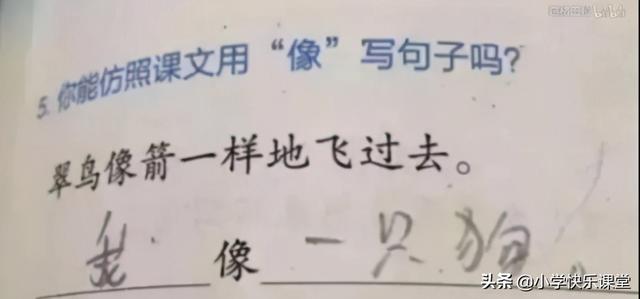 5. 你能仿照课文用“像”写句子吗?
翠鸟像箭一样地飞过去。
我像一只狗。
头条 @小学快乐课堂